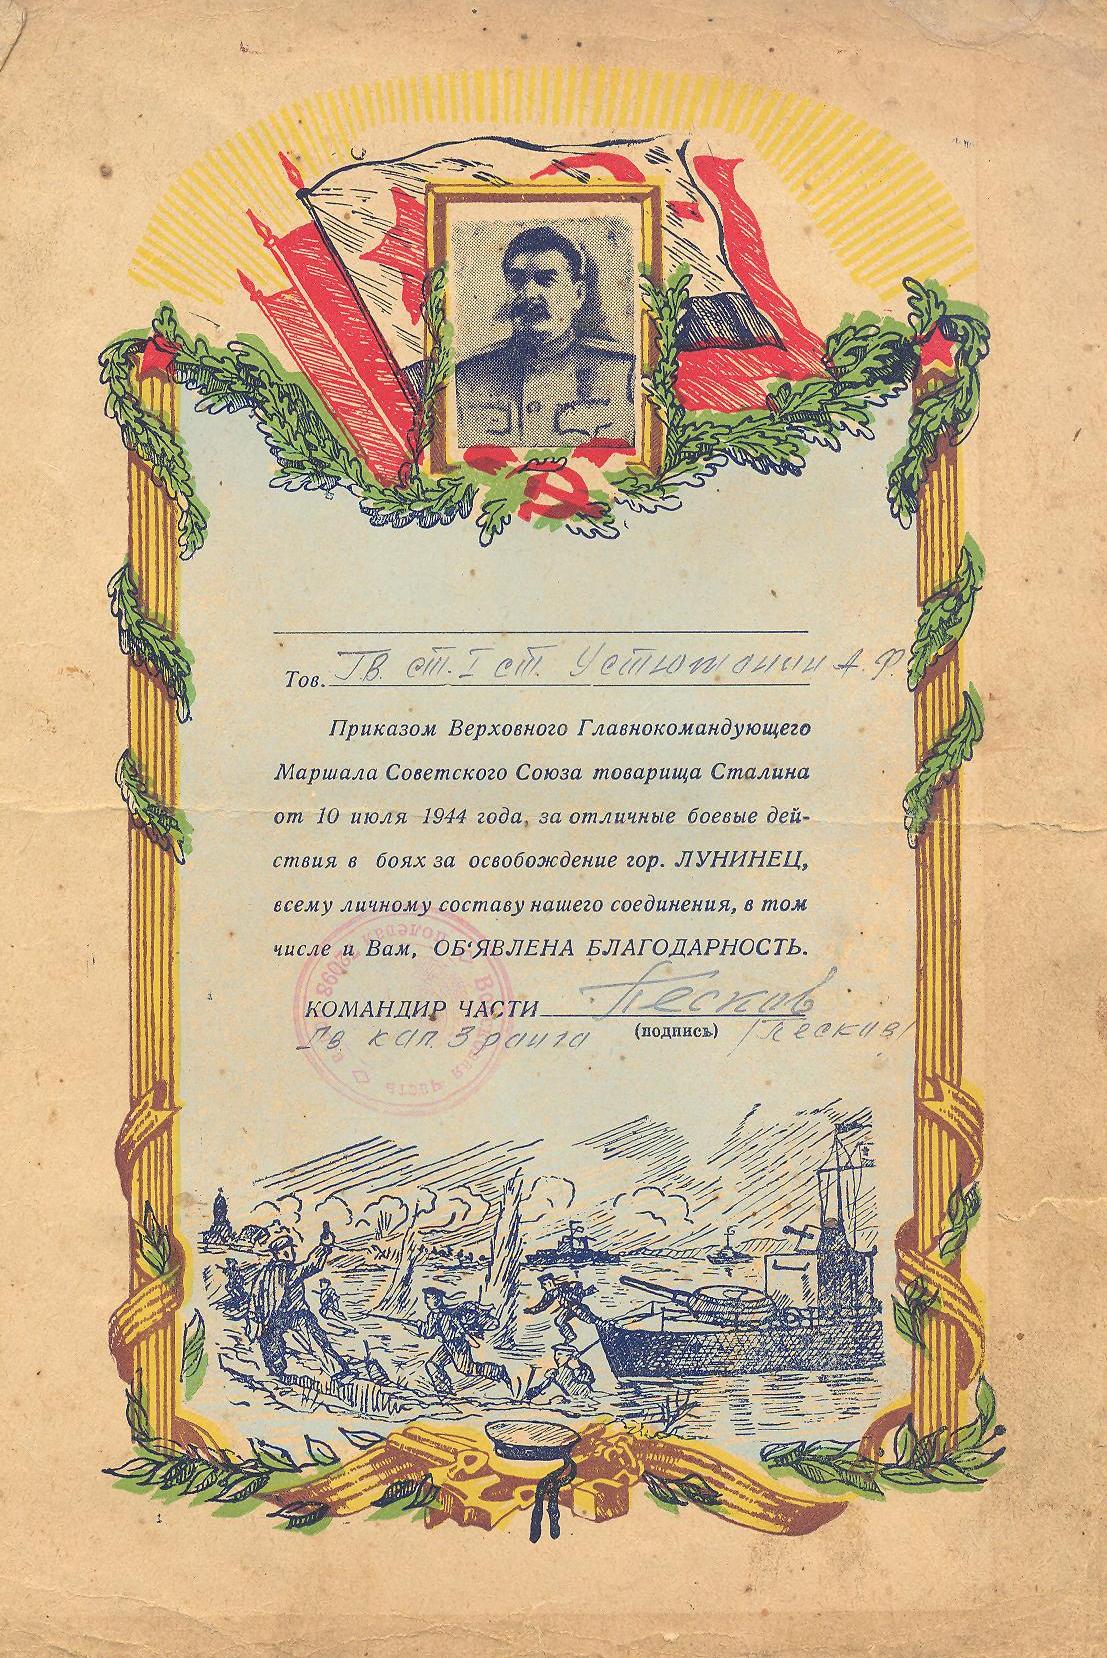 Тов. Гв. ст. I ст. Устюжанин А. Ф.
Приказом Верховного Главнокомандующего
Маршала Советского Союза товарища Сталина
от 10 июля 1944 года, за отличные боевые дей-
ствия в боях за освобождение гор. ЛУНИНЕЦ,
всему личному составу нашего соединения, в том
числе и Вам, ОБ‘ЯВЛЕНА БЛАГОДАРНОСТЬ.
КОМАНДИР ЧАСТИ Песков
(подпись)
Гв. кап. 3 ранга /Песков/
часть Полевая